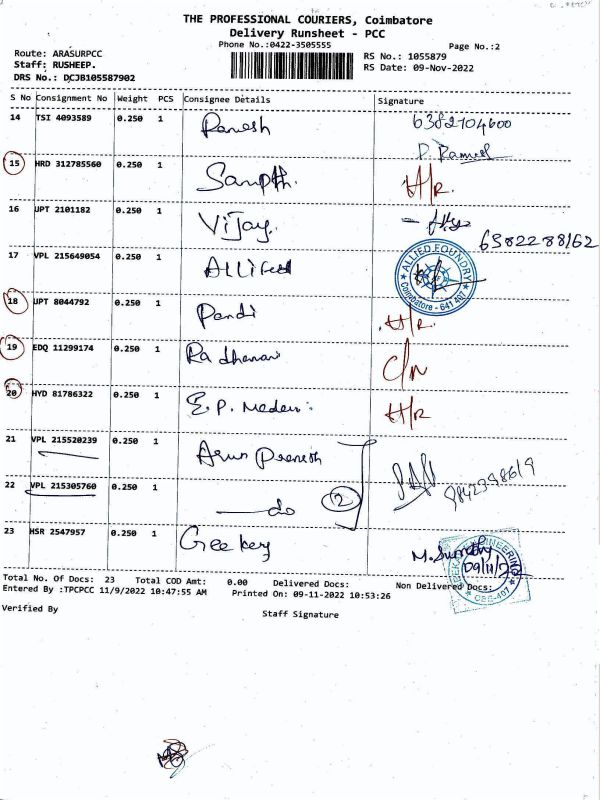 THE PROFESSIONAL COURIERS, Coimbatore
Delivery Runsheet - PCC
Phone No.:0422-3505555
Page No.:2
Route: ARASURPCC
Staff: RUSHEEP.
DRS No.: DCJB105587902
RS No.: 1055879
RS Date: 09-Nov-2022
S No Consignment No Weight PCS Consignee Details Signature
14 TSI 4093589 0.250 1 Ramesh 6382704600
P. Ramesh
15 HRD 312785560 0.250 1 Sampth. H/R.
16 UPT 2101182 0.250 1 Vijay.
6382288162
17 VPL 215649054 0.250 1 Allied ALLIED FOUNDRY Coimbatore - 641 407
18 UPT 8044792 0.250 1 Pandi H/R.
19 EDQ 11299174 0.250 1 C/N
20 HYD 81786322 0.250 1 E.P. H/R
21 VPL 215520239 0.250 1 Arun
9842398619
22 VPL 215305760 0.250 1 do 2
23 HSR 2547957 0.250 1 Geekey M.
ENGINEERING
09/11/2
CBE-407
Total No. Of Docs: 23 Total COD Amt: 0.00 Delivered Docs: Non Delivered Docs:
Entered By :TPCPCC 11/9/2022 10:47:55 AM Printed On: 09-11-2022 10:53:26
Verified By Staff Signature